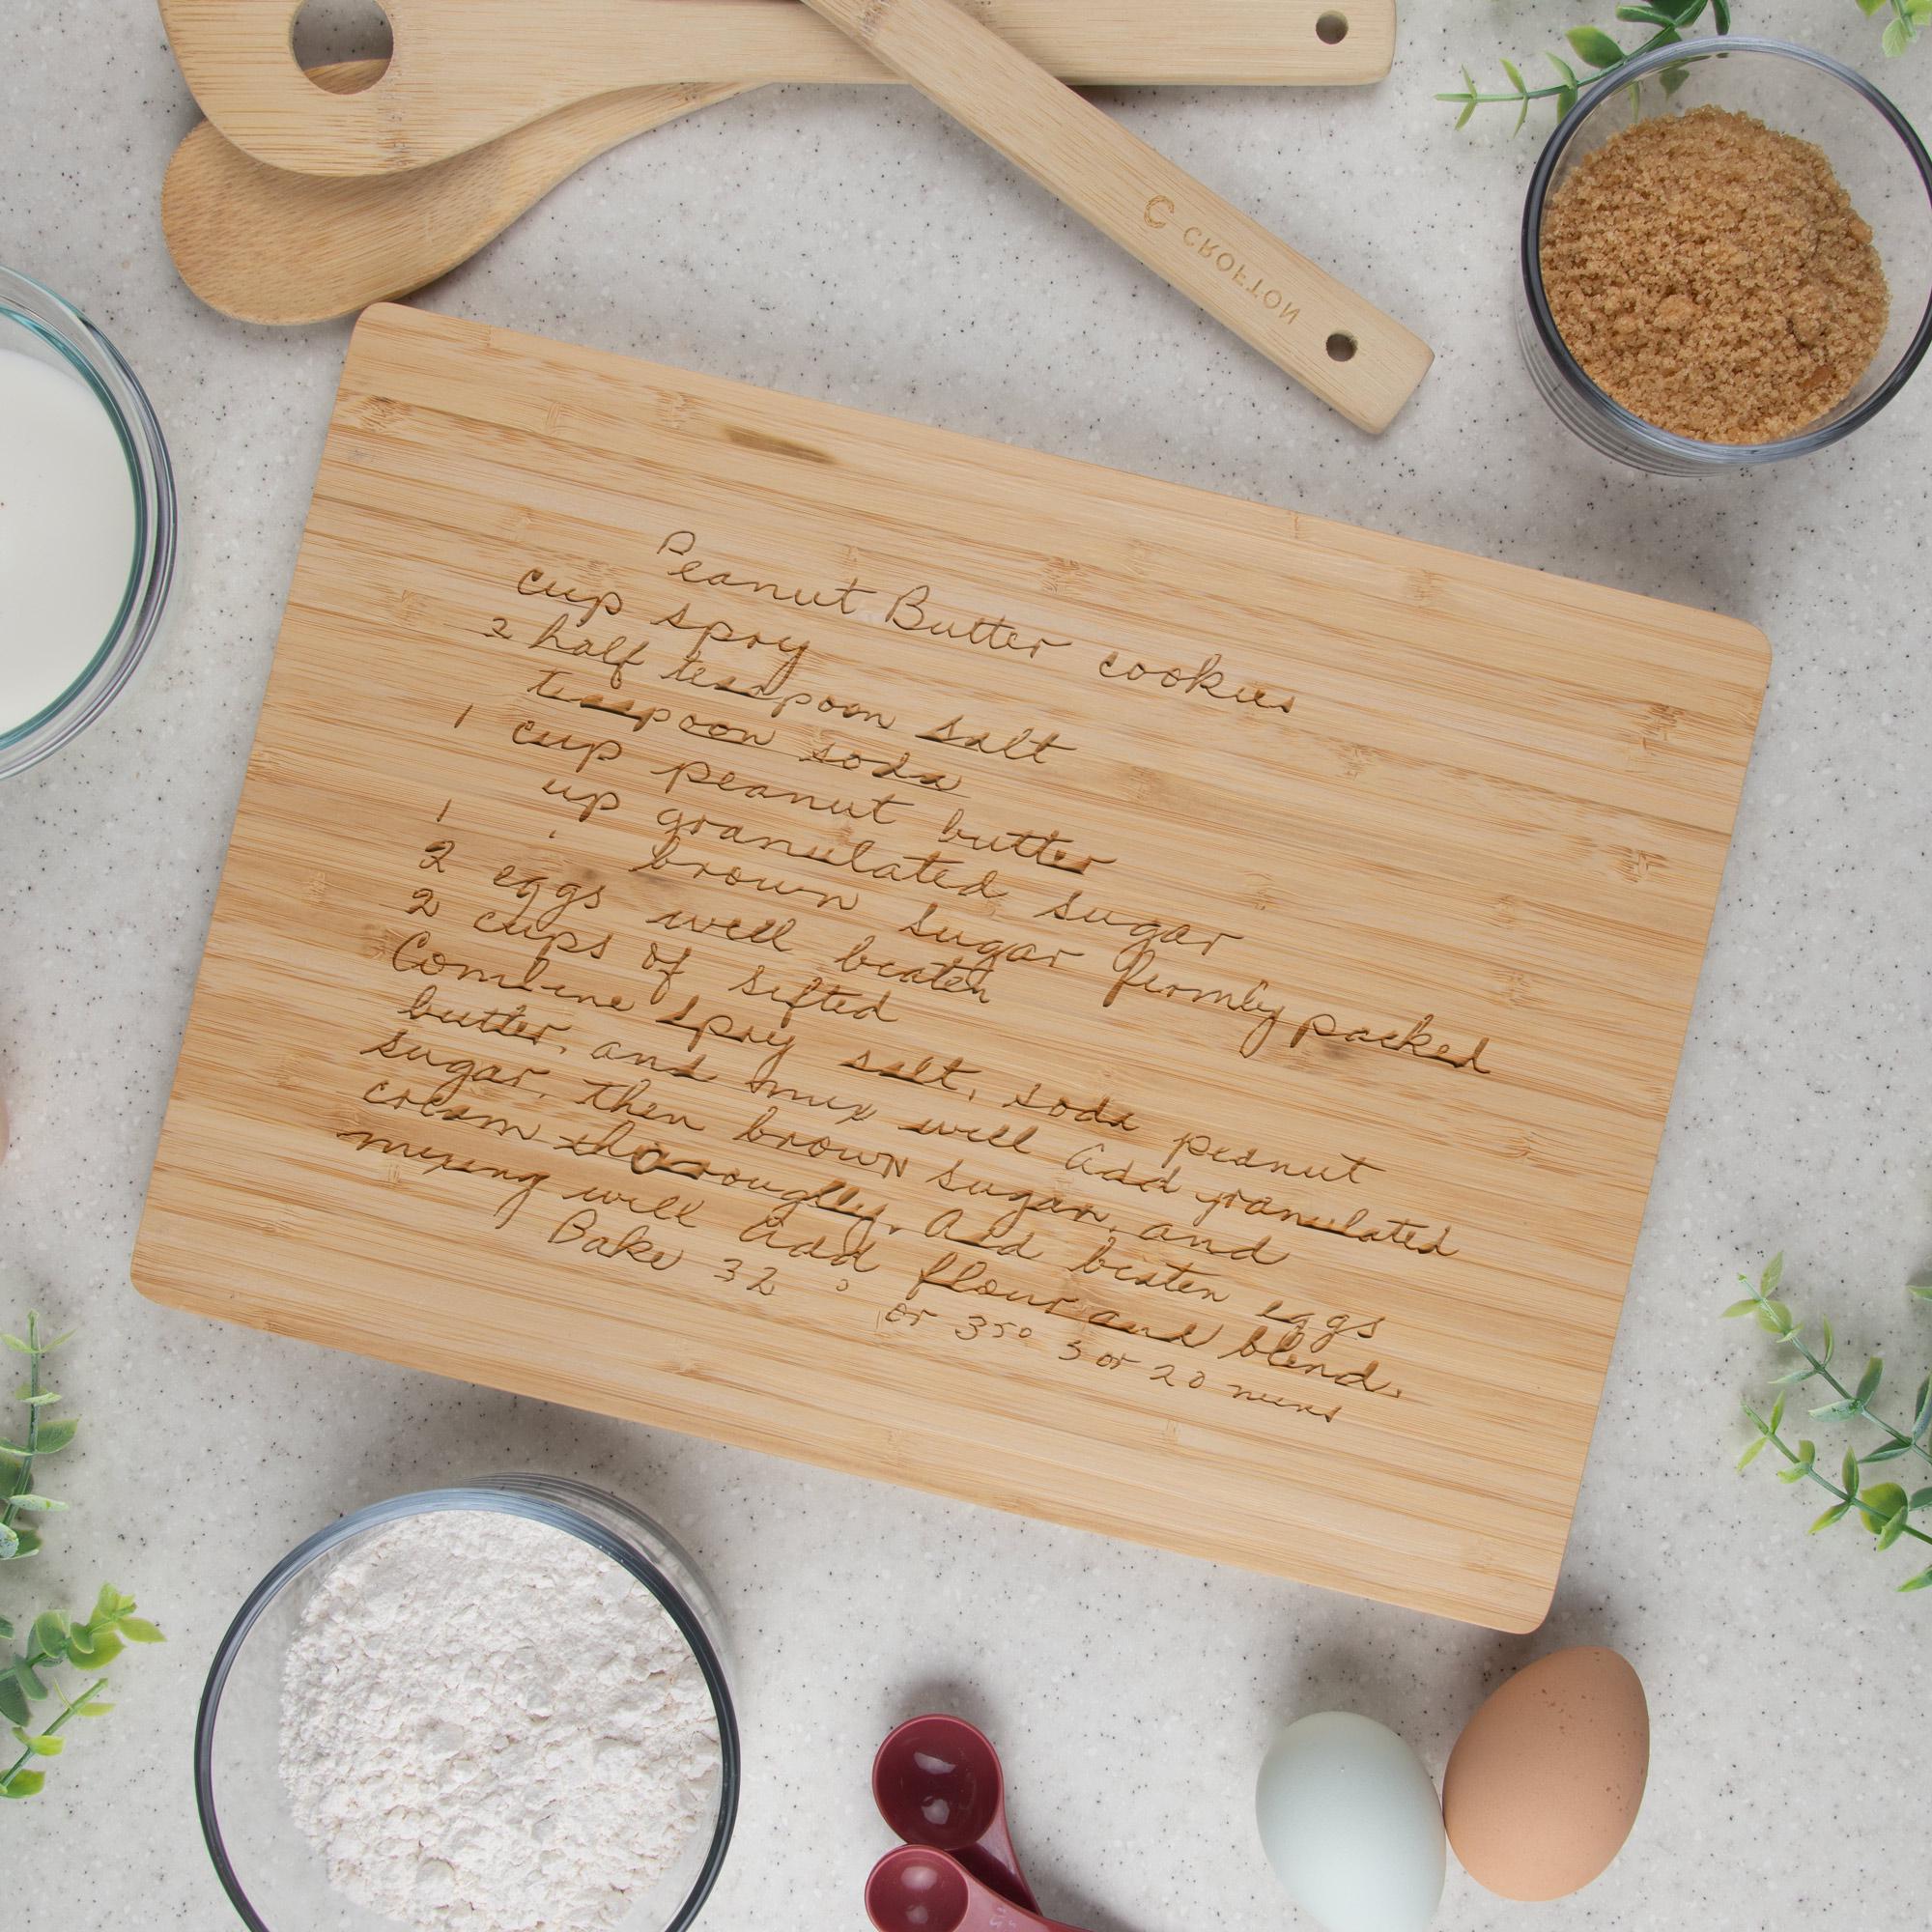 C CROFTON
Peanut Butter cookies
cup spry
2 half teaspoon salt
teaspoon soda
1 cup peanut butter
up granulated sugar
1 brown sugar firmly packed
2 eggs well beaten
2 cups of sifted
Combine spry salt, soda peanut
butter, and mix well Add granulated
sugar, then brown sugar, and
cream thoroughly. Add beaten eggs
mixing well Add flour and blend.
Bake 32 ° or 350 5 or 20 mins